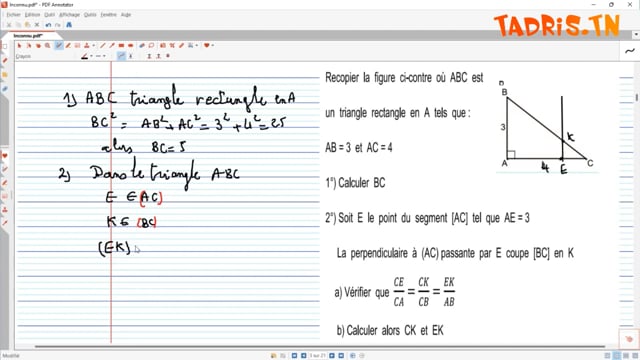 Inconnu.pdf* - PDF Annotator
TADRIS.TN
Inconnu.pdf*
Crayons
1) ABC triangle rectangle en A
BC² = AB² + AC² = 3² + 4² = 25
alors BC = 5
2) Dans le triangle ABC
E ∈ (AC)
K ∈ (BC)
(EK)
Recopier la figure ci-contre où ABC est
un triangle rectangle en A tels que :
AB = 3 et AC = 4
1°) Calculer BC
2°) Soit E le point du segment [AC] tel que AE = 3
La perpendiculaire à (AC) passante par E coupe [BC] en K
a) Vérifier que CE/CA = CK/CB = EK/AB
b) Calculer alors CK et EK
B
3
K
A
4
E
C
5 sur 21